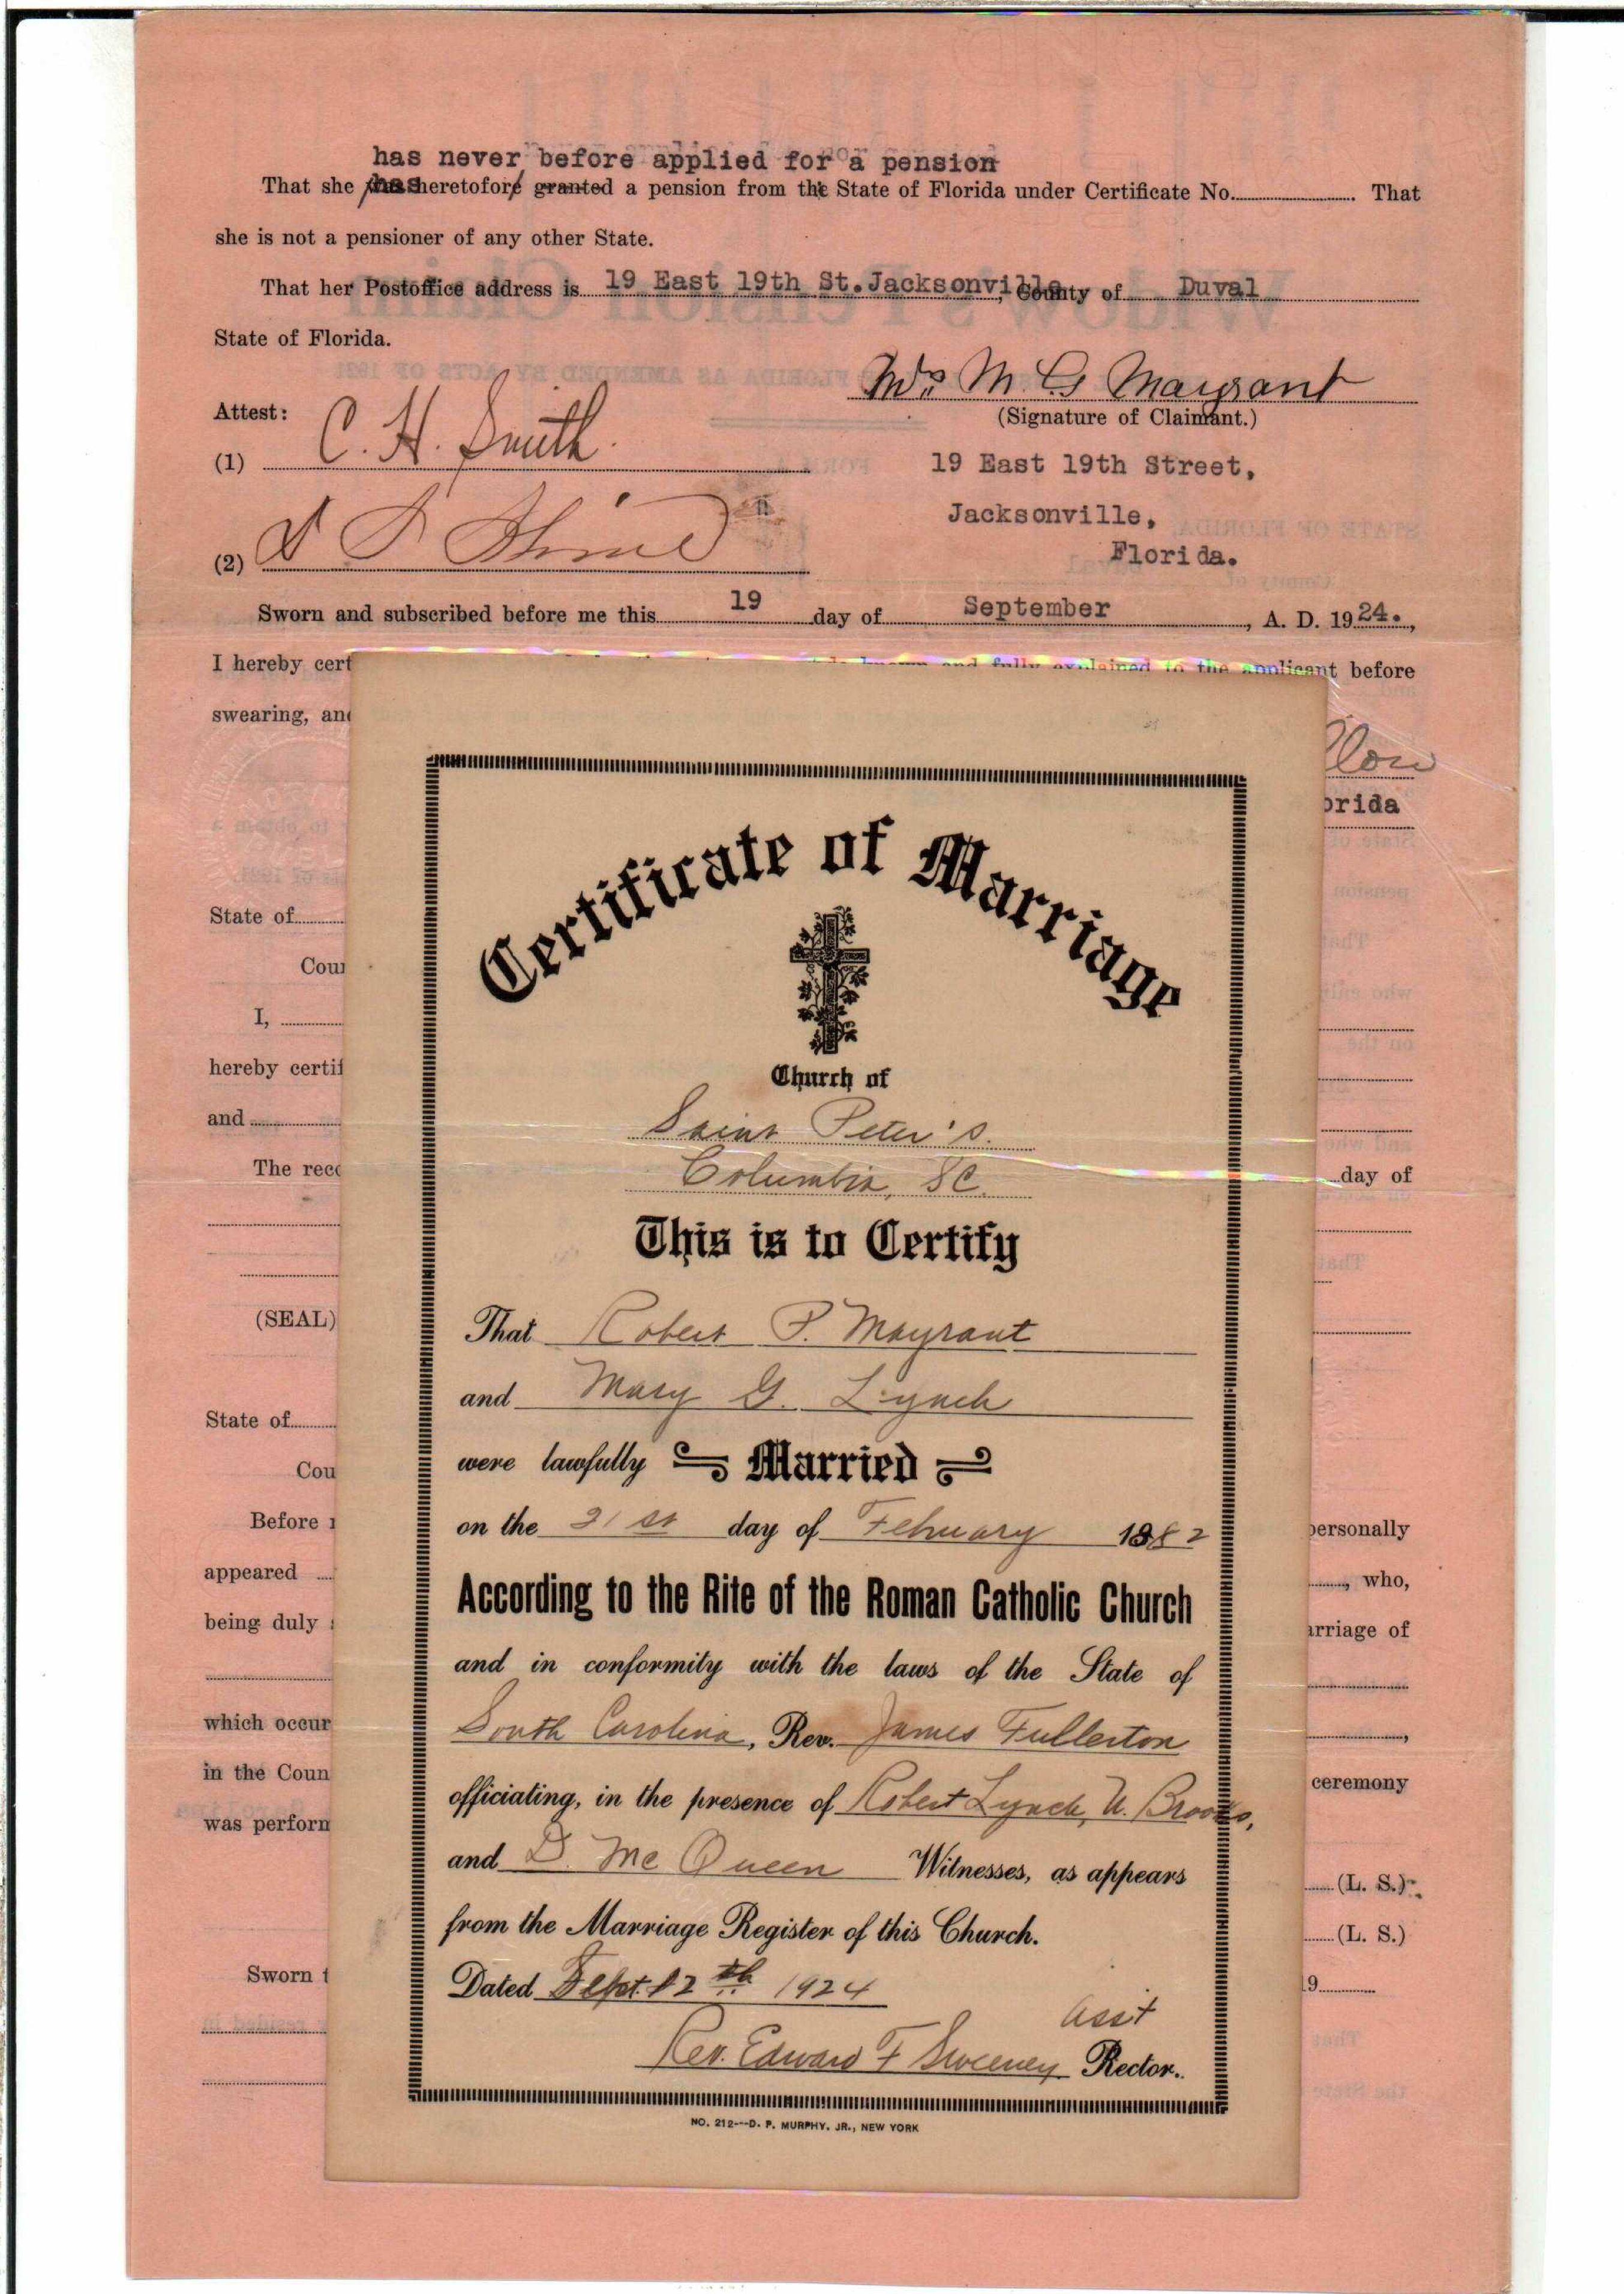 has never before applied for a pension
That she has heretofore granted a pension from the State of Florida under Certificate No. That
she is not a pensioner of any other State.
That her Postoffice address is 19 East 19th St. Jacksonville, County of Duval
State of Florida.
Mrs M. G Mayrant
Attest:
(Signature of Claimant.)
(1) C. H. Smith.
19 East 19th Street,
Jacksonville,
(2)
Florida.
Sworn and subscribed before me this 19 day of September, A. D. 1924.,
I hereby cert known and fully explained to the applicant before
swearing, and
orida
State of
Cou
I,
hereby certif
and
The reco
day of
(SEAL)
State of
Cou
Before personally
appeared , who,
being duly arriage of
which occur ,
in the Coun ceremony
was perform
(L. S.)
(L. S.)
Sworn t 19
Certificate of Marriage
Church of
Saint Peter's.
Columbia, SC.
This is to Certify
That Robert P. Mayrant
and Mary G. Lynch
were lawfully Married
on the 21st day of February 1882
According to the Rite of the Roman Catholic Church
and in conformity with the laws of the State of
South Carolina, Rev. James Fullerton
officiating, in the presence of Robert Lynch, U. Brooks,
and D. McQueen Witnesses, as appears
from the Marriage Register of this Church.
Dated Sept. 12th 1924
Asst
Rev. Edward F Sweeney Rector.
NO. 212---D. P. MURPHY, JR., NEW YORK